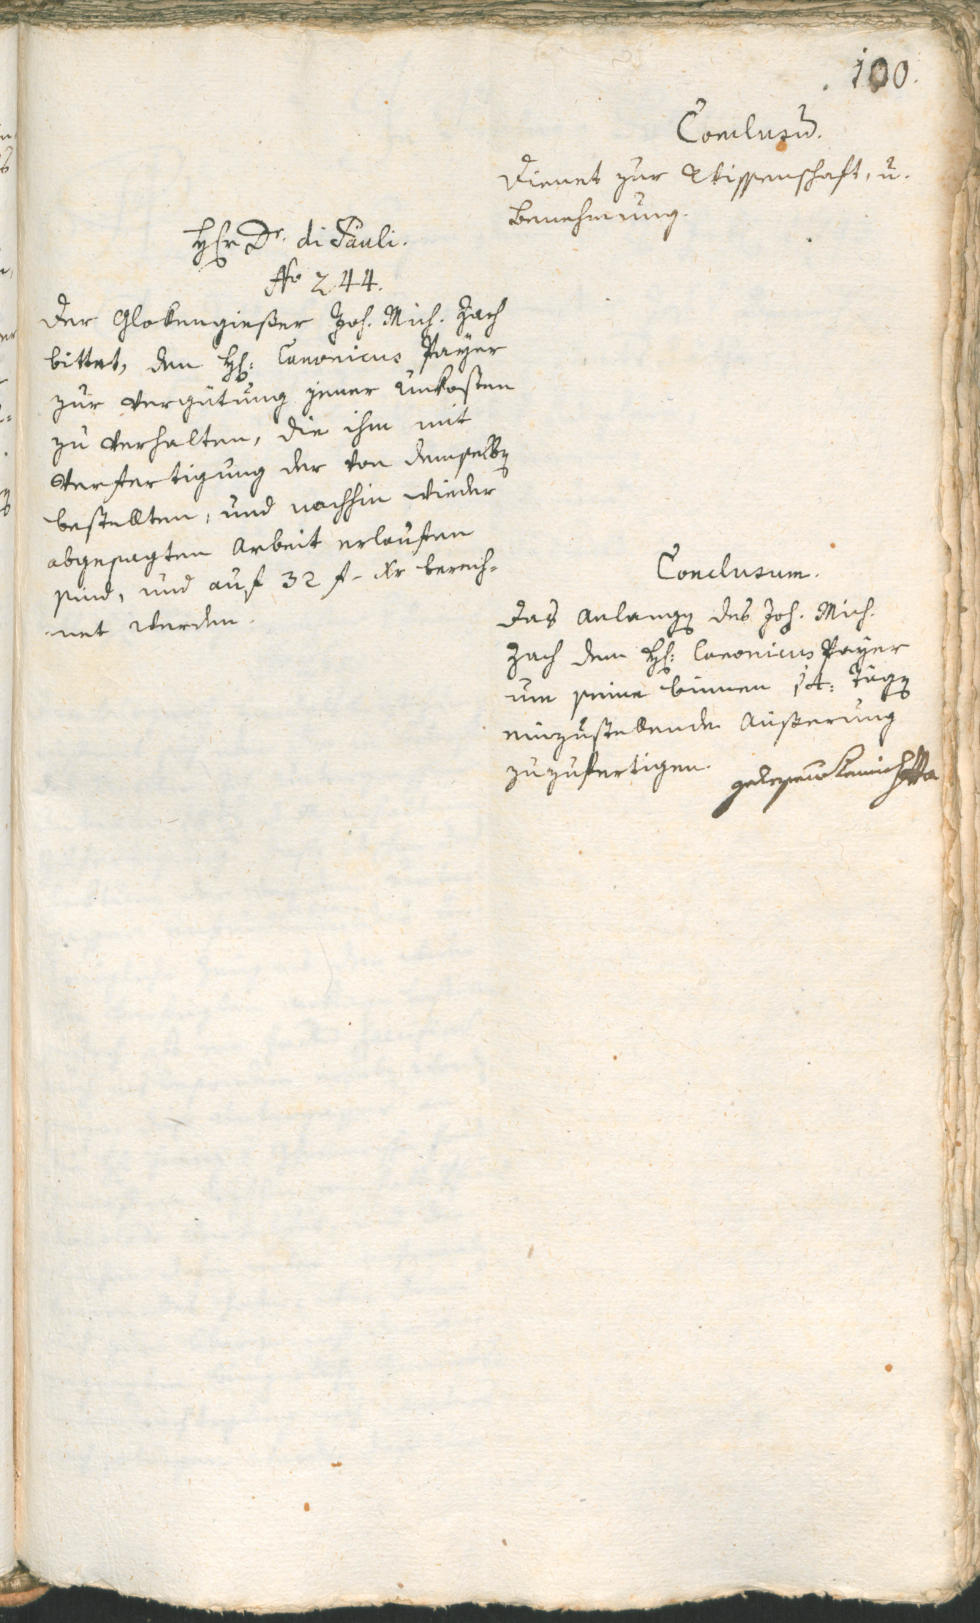 100.
Conclusum.
Dienet zur Wissenschaft, u.
Benehmung.
Hhr Dr. di Pauli.
No 244.
Der Glokengießer Joh. Mich. Zach
bittet, den Hh: Canonicus Payer
zur Vergütung jener Unkosten
zu verhalten, die ihm mit
Verfertigung der von demselben
bestellten, und nachhin wieder
abgesagten Arbeit erlaufen
sind, und auf 32 f - Xr berech-
net werden.
Conclusum.
Das Anlangen des Joh. Mich.
Zach dem Hh: Canonicus Payer
um seine binnen 14: Tägen
einzustellende Äußerung
zuzufertigen.
gelesen